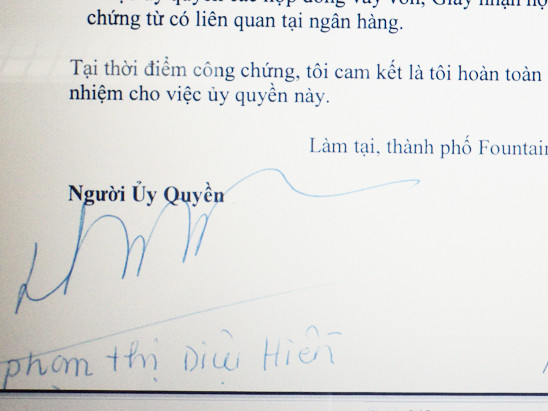 ủy quyền các hợp đồng vay vốn, Giấy nhận nợ
chứng từ có liên quan tại ngân hàng.
Tại thời điểm công chứng, tôi cam kết là tôi hoàn toàn
nhiệm cho việc ủy quyền này.
Làm tại, thành phố Fountain
Người Ủy Quyền
phạm thị Diệu Hiền